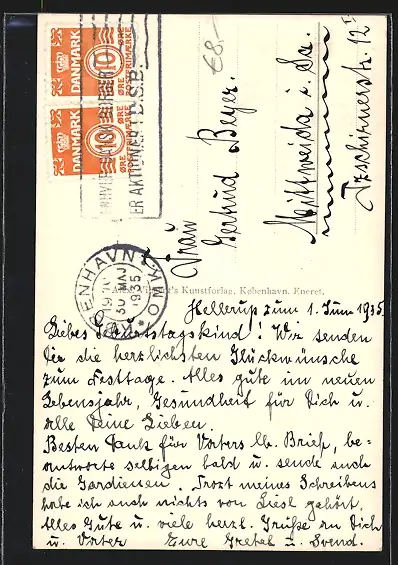 €8.-
DANMARK
10
ØRE
POSTFRIMÆRKE
DANMARK
10
ØRE
POSTFRIMÆRKE
ER AKTIONÆR I D.S.B.
KØBENHAVN OMK.
30 MAJ
1935
Frau
Gertrud Beyer.
Mittweida i. Sa.
Tzschirnerstr. 12 I
Alex. Vincent's Kunstforlag. København. Eneret.
Hellerup zum 1. Juni 1935.
Liebes Geburtstagskind! Wir senden
Dir die herzlichsten Glückwünsche
zum Festtage. Alles gute im neuen
Lebensjahr, Gesundheit für Dich u.
alle Deine Lieben.
Besten Dank für Vaters lb. Brief, be=
antworte selbigen bald u. sende auch
die Gardienen. Trotz meines Schreibens
habe ich auch nichts von Liesl gehört.
Alles Gute u. viele herzl. Grüße an Dich
u. Vater Eure Gretel u. Svend.